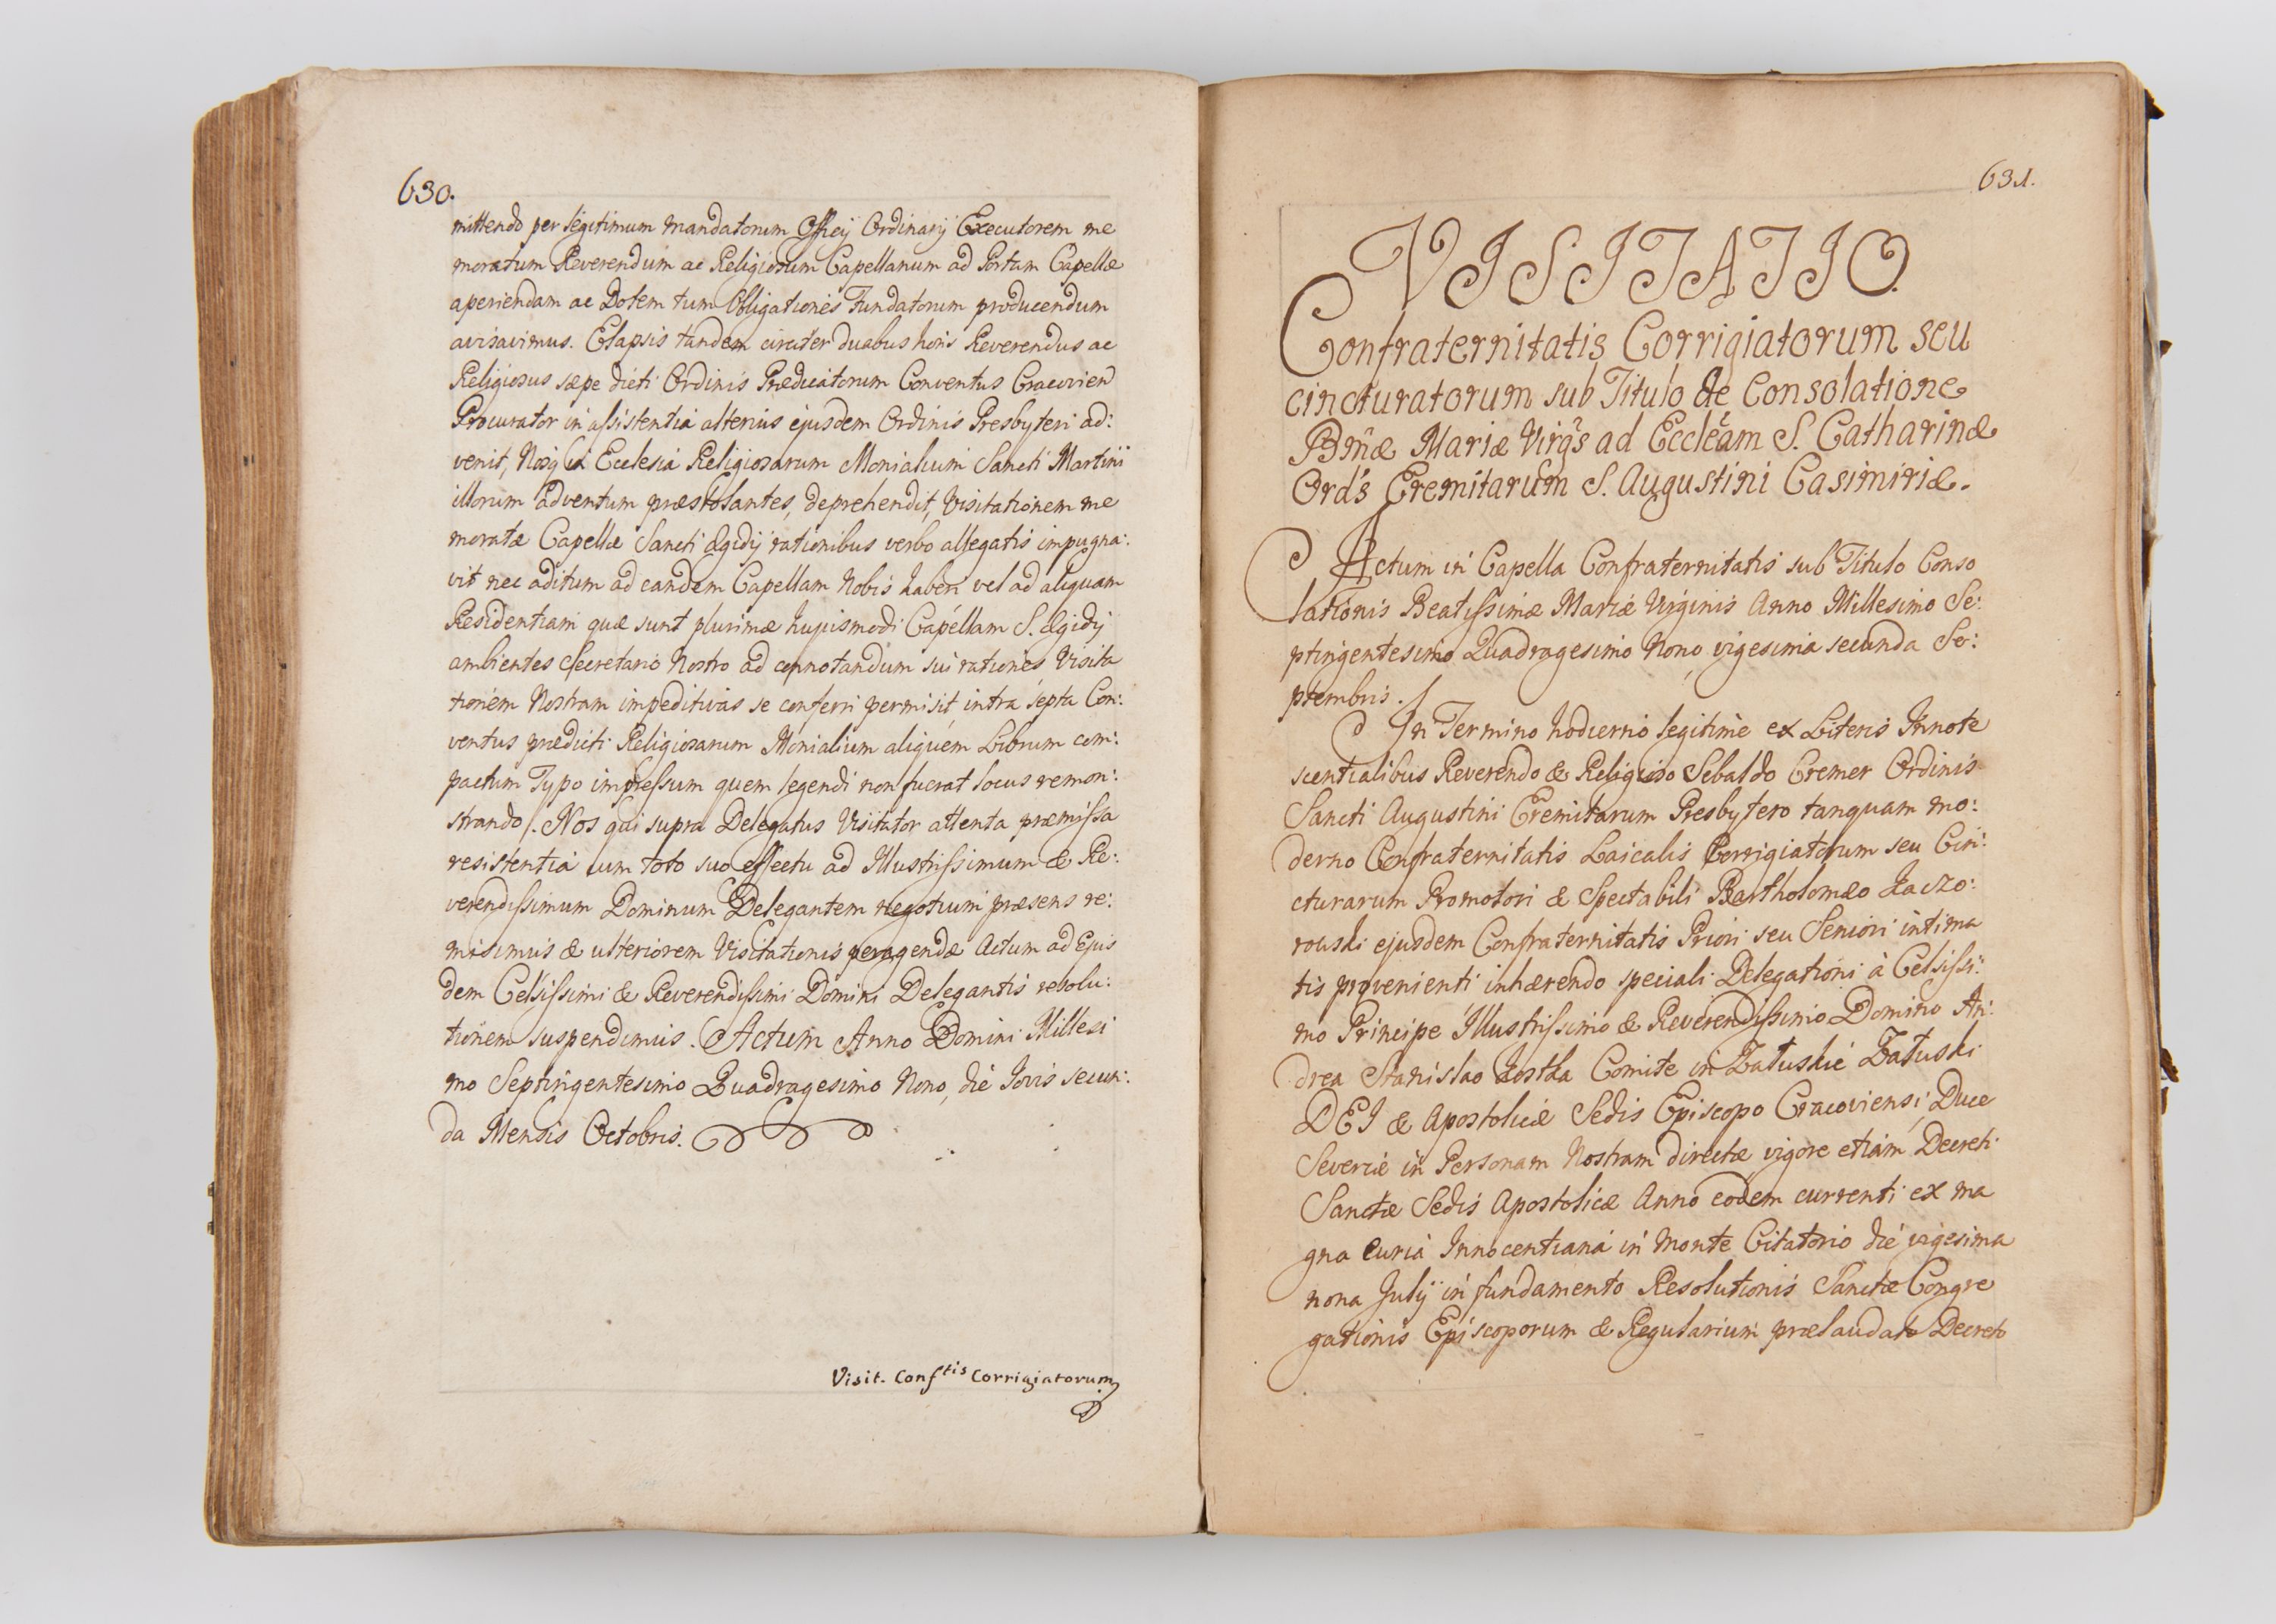 630.
mittendo per legitimum mandatorum Officÿ Ordinarÿ Executorem me
moratum Reverendum ac Religiosum Capellanum ad Portam Capellæ
aperiendam ac Dotem tum Obligationes Fundatorum producendum
avisavimus. Elapsis tandem circiter duabus horis Reverendus ac
Religiosus sæpe dicti Ordinis Prædicatorum Conventus Cracovien
Procurator in assistentia alterius ejusdem Ordinis Presbyteri ad:
venit, Nosq in Ecclesia Religiosarum Monialium Sancti Martini
illorum adventum præstolantes, deprehendit, Visitationem me
moratæ Capellæ Sancti Ægidÿ rationibus verbo allegatis impugna:
vit nec aditum ad eandem Capellam Nobis haberi vel ad aliquam
Residentiam quæ sunt plurimæ hujusmodi Capellam S. Ægidÿ
ambientes Secretario Nostro ad connotandum sui rationes Visita
tionem Nostram impeditivas se conferri permisit, intra septa Con:
ventus prædicti Religiosarum Monialium aliquem Librum com:
pactum Typo impressum quem legendi non fuerat locus remon:
strando. Nos qui supra Delegatus Visitator attenta præmissa
resistentia cum toto suo effectu ad Illustrissimum & Re:
verendissimum Dominum Delegantem negotium præsens re:
misimus & ulteriorem Visitationis peragendæ Actum ad Ejus
dem Celsissimi & Reverendissimi Domini Delegantis resolu:
tionem suspendimus. Actum Anno Domini Millesi
mo Septingentesimo Quadragesimo Nono, die Jovis secun:
da Mensis Octobris.
Visit. Conf^tis Corrigiatorum
631.
VISITATIO
Confraternitatis Corrigiatorum seu
cincturatorum sub Titulo de Consolatione
Bmæ Mariæ Virgs ad Eccleam S. Catharinæ
Ords Eremitarum S. Augustini Casimiriæ.
Actum in Capella Confraternitatis sub Titulo Conso
lationis Beatissimæ Mariæ Virginis Anno Millesimo Se:
ptingentesimo Quadragesimo Nono, vigesima secunda Se:
ptembris.
In Termino hodierno legitime ex Literis Innote
scentialibus Reverendo & Religioso Sebaldo Cremer Ordinis
Sancti Augustini Eremitarum Presbytero tanquam mo:
derno Confraternitatis Laicalis Corrigiatorum seu Cin:
cturarum Promotori & Spectabili Bartholomæo Kaczo:
rowski ejusdem Confraternitatis Priori seu Seniori intima
tis provenienti inhærendo speciali Delegationi à Celsissi:
mo Principe Illustrissimo & Reverendissimo Domino An:
drea Stanislao Kostka Comite in Załuskie Załuski
DEI & Apostolicæ Sedis Episcopo Cracoviensi, Duce
Severiæ in Personam Nostram directæ vigore etiam Decreti
Sanctæ Sedis Apostolicæ Anno eodem currenti ex ma
gna Curia Innocentiana in Monte Citatorio die vigesima
nona Julÿ in fundamento Resolutionis Sanctæ Congre
gationis Episcoporum & Regularium prælaudato Decreto